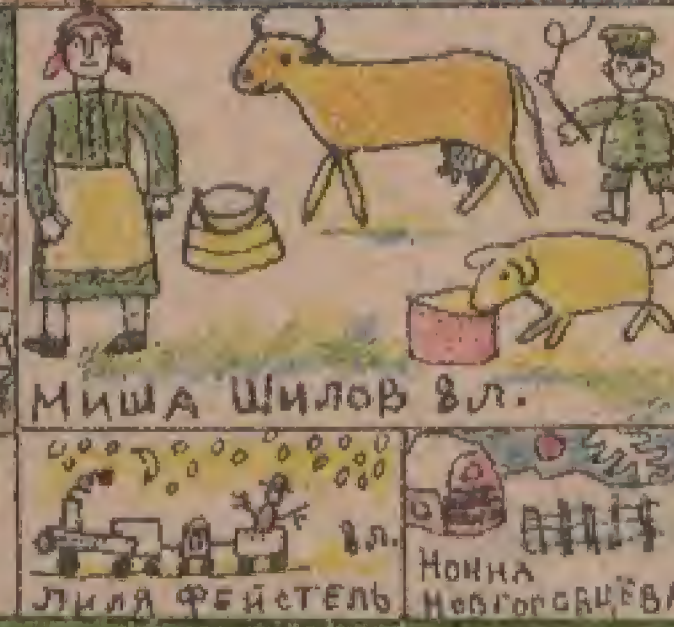 МИША ШИЛОВ 8 Л.
8 Л.
ЛИЛЯ ФЕЙСТЕЛЬ
НОННА
НОВГОРОДЦЕВА